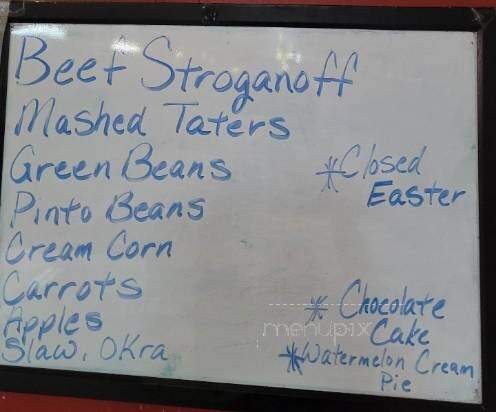 Beef Stroganoff
Mashed Taters
Green Beans
Pinto Beans
Cream Corn
Carrots
Apples
Slaw, OKra
* Closed
Easter
* Chocolate
Cake
* Watermelon Cream
Pie
menupix